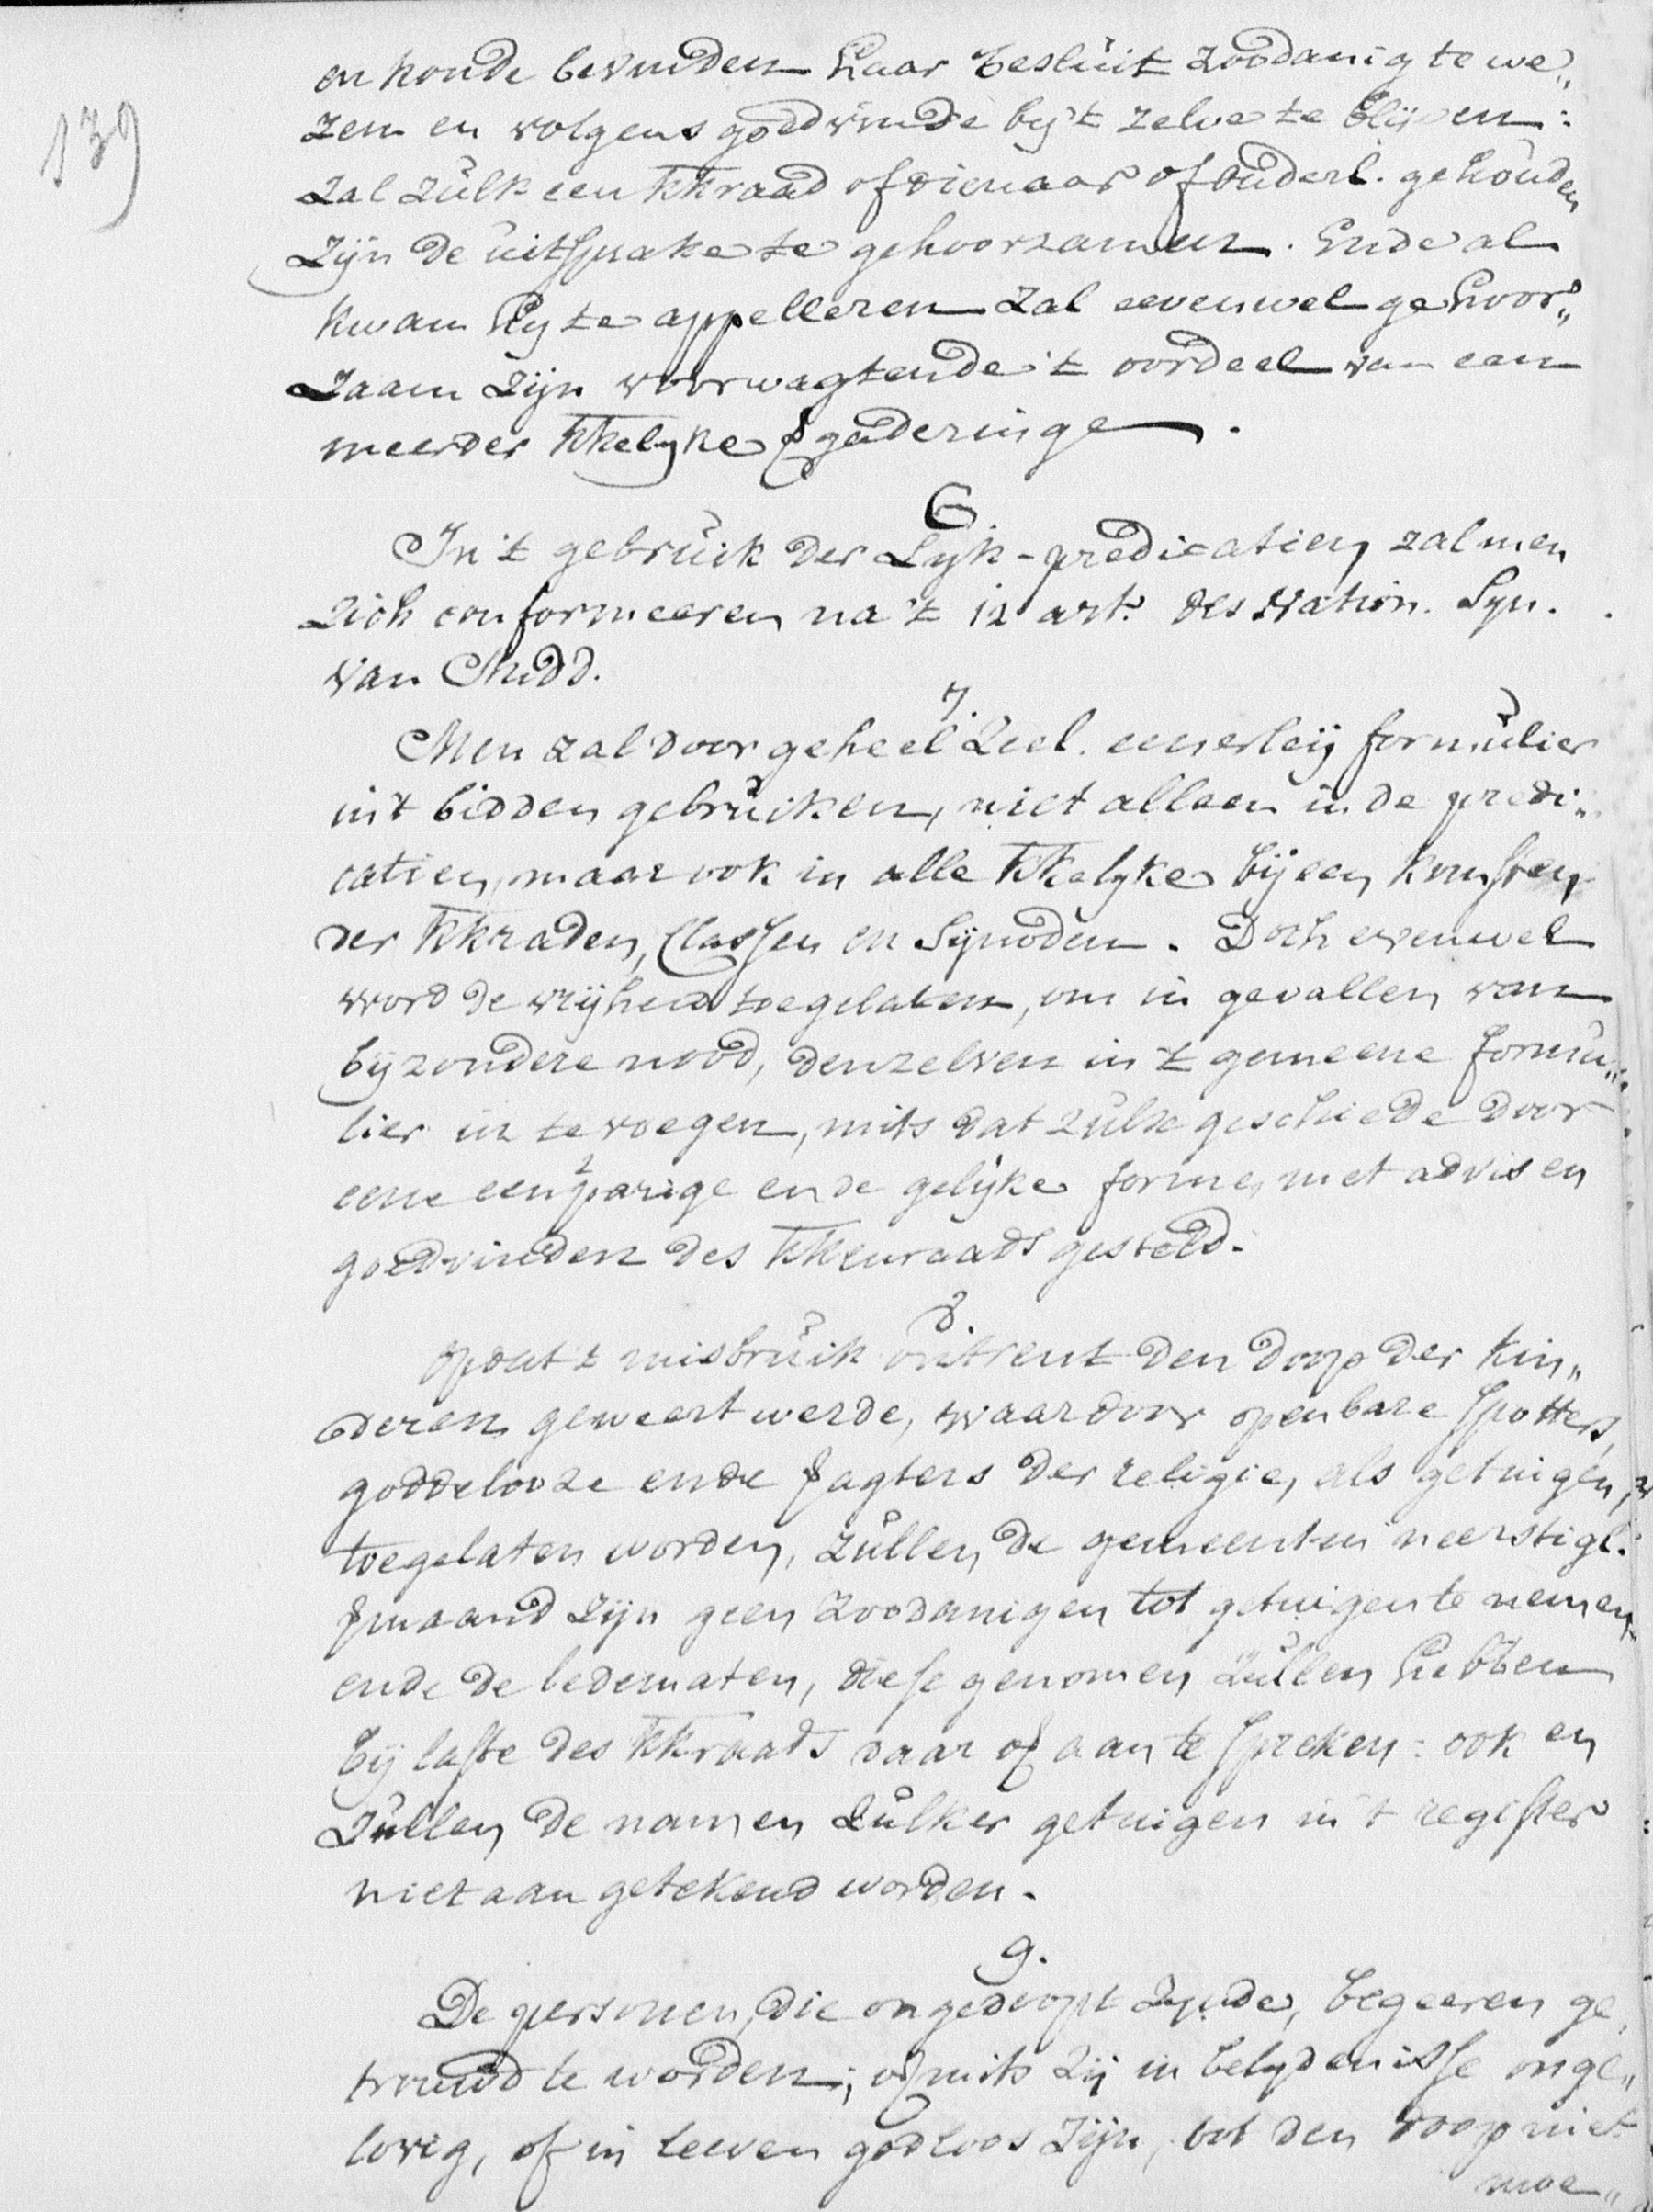 139
en konde bevinden haar besluit zoodanig te we„
zen en volgens goedvinde by't zelve te blijven:
zal zulk een kkraad of dienaar of ouderl. gehouden
zijn de uitsprake te gehoorzamen. Ende al
kwam hy te appelleren zal eevenwel gehoor„
zaam zijn voorwagtende 't oordeel van een
meerder kkelyke vgaderinge.
6.
In 't gebruik der Lyk-predicatien zal men
zich conformeeren na 't 12 art. des Nation. Syn.
van Midd.
7.
Men zal door geheel Zeel. eenerleij formulier
in't bidden gebruiken, niet alleen in de predi„
catien, maar ook in alle kkelyke bijeenkomsten
der kkraden, Classen en Sijnoden. Doch evenwel
word de vrijheid toegelaten, om in gevallen van
byzondere nood, denzelven in 't gemeene formu„
lier in te voegen, mits dat zulx geschiede door
eene eenparige ende gelijke forme, met advis en
goedvinden des kkenraads gesteld.
8.
Op dat 't misbruik omtrent den doop der kin„
deren geweert werde, waardoor openbare spotters,
goddelooze ende vagters der religie, als getuigen,
toegelaten worden, zullen de gemeenten neerstigl.
vmaand zijn geen zoodanigen tot getuigen te nemen,
ende de ledematen, diese genomen zullen hebben
bij laste des kkraads daar ov aan te spreken: ook en
zullen de namen zulker getuigen in 't register
niet aangetekend worden.
9.
De personen, die ongedoopt zynde, begeeren ge„
trouwd te worden; vmits zij in belydenisse onge„
lovig, of in leeven godloos zijn, tot den doop niet
moe„